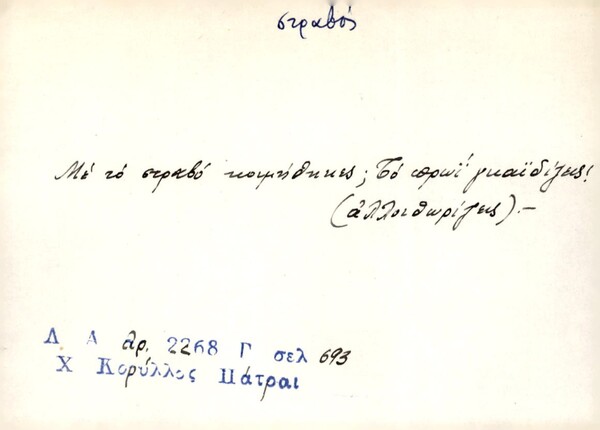 στραβός
Μέ τό στραβό κοιμήθηκες; Τό πρωΐ γκαϊδίζεις!
(ἀλλοιθωρίζεις).-
Λ. Α αρ. 2268 Γ σελ 693
Χ Κορύλλος Πάτραι